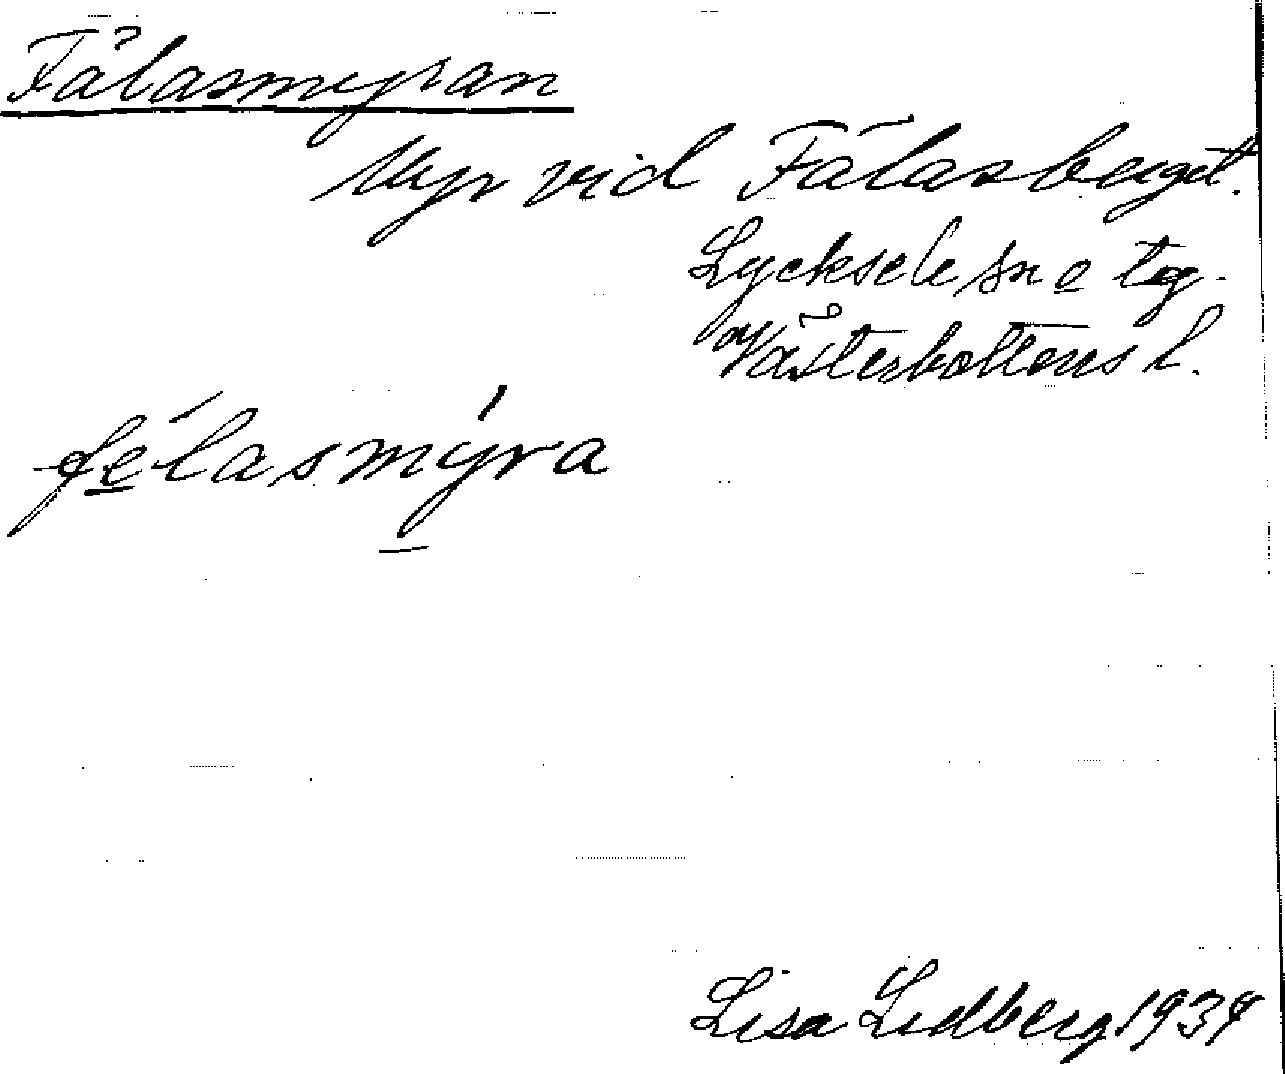 Fälasmyran
Myr vid Fälasberget.
Lycksele sn o tg.
Västerbottens l.
fe̲´lasmy̲´ra
Lisa Lidberg 1934